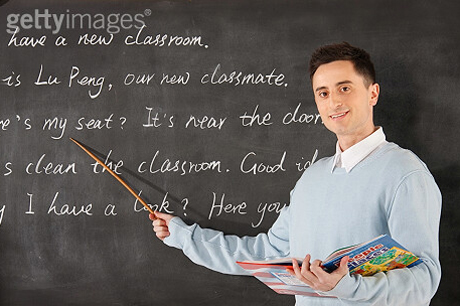 gettyimages®
have a new classroom.
is Lu Peng, our new classmate.
re's my seat? It's near the door
s clean the classroom. Good id
I have a look? Here you